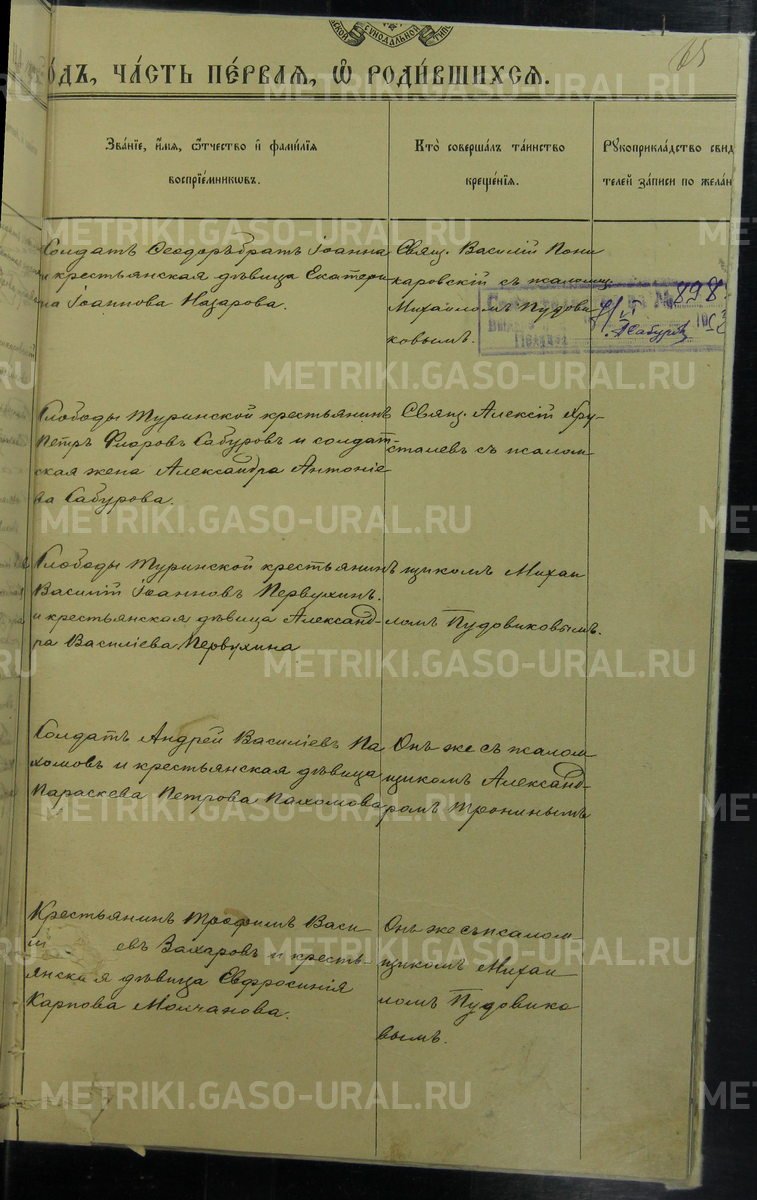 СѴНОДАЛЬНОЙ
65
ГОДЪ, ЧАСТЬ ПЕРВАЯ, Ѿ РОДИВШИХСЯ.
Званіе, имя, ѿчество и фамилія
воспріемниковъ.
Кто совершалъ таинство
крещенія.
Рукоприкладство свид
телей записи по желан
Солдатъ Ѳеодоръ братъ Іоанна
и крестьянская дѣвица Екатери
на Іоаннова Назарова.
Свящ. Василій Пони
каровскій съ псаломщ.
Михаиломъ Пудови
ковымъ.
№ 898
Слободы Туринской крестьянинъ
Петръ Флоровъ Сабуровъ и солдат-
ская жена Александра Антоніе
ва Сабурова.
Свящ. Алексій Хру-
сталевъ съ псалом
Слободы Туринской крестьянинъ
Василій Іоанновъ Первухинъ.
и крестьянская дѣвица Александ-
ра Василіева Первухина
щикомъ Михаи
ломъ Пудовиковымъ.
Солдатъ Андрей Василіевъ Па
хомовъ и крестьянская дѣвица
Параскева Петрова Пахомова
Онъ же съ псалом
щикомъ Александ-
ромъ Трониным
Крестьянинъ Трофимъ Васи
евъ Захаровъ и кресть-
янская дѣвица Евфросинія
Карпова Молчанова.
Онъ же съ псалом-
щикомъ Михаи
ломъ Пудовико
вымъ.
METRIKI.GASO-URAL.RU